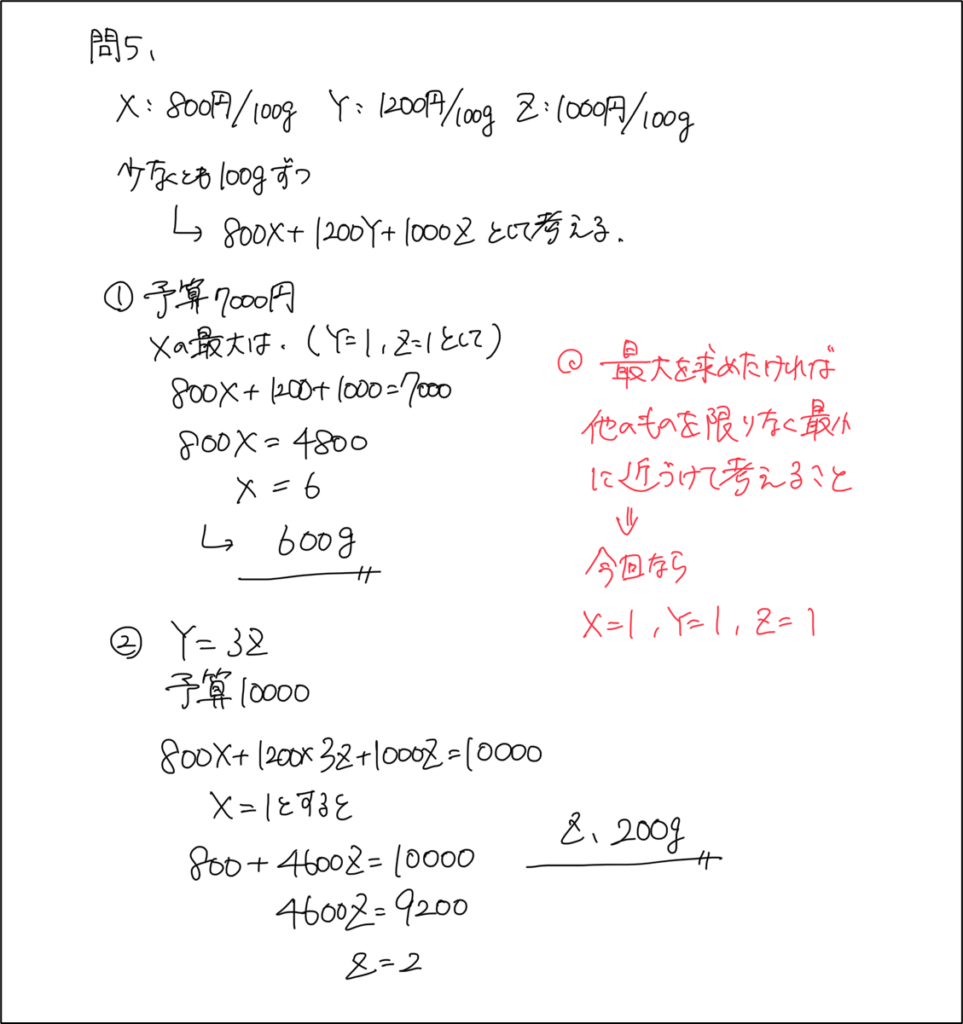 問5、
X:800円/100g Y:1200円/100g Z:1000円/100g
少なくとも100gずつ
↳ 800X+1200Y+1000Z として考える.
① 予算7000円
Xの最大は.(Y=1,Z=1として)
800X+1200+1000=7000
800X=4800
X=6
↳ 600g
◎ 最大を求めたければ
他のものを限りなく最小
に近づけて考えること
⇓
今回なら
X=1,Y=1,Z=1
② Y=3Z
予算10000
800X+1200×3Z+1000Z=10000
X=1とすると
800+4600Z=10000
4600Z=9200
Z=2
Z、200g